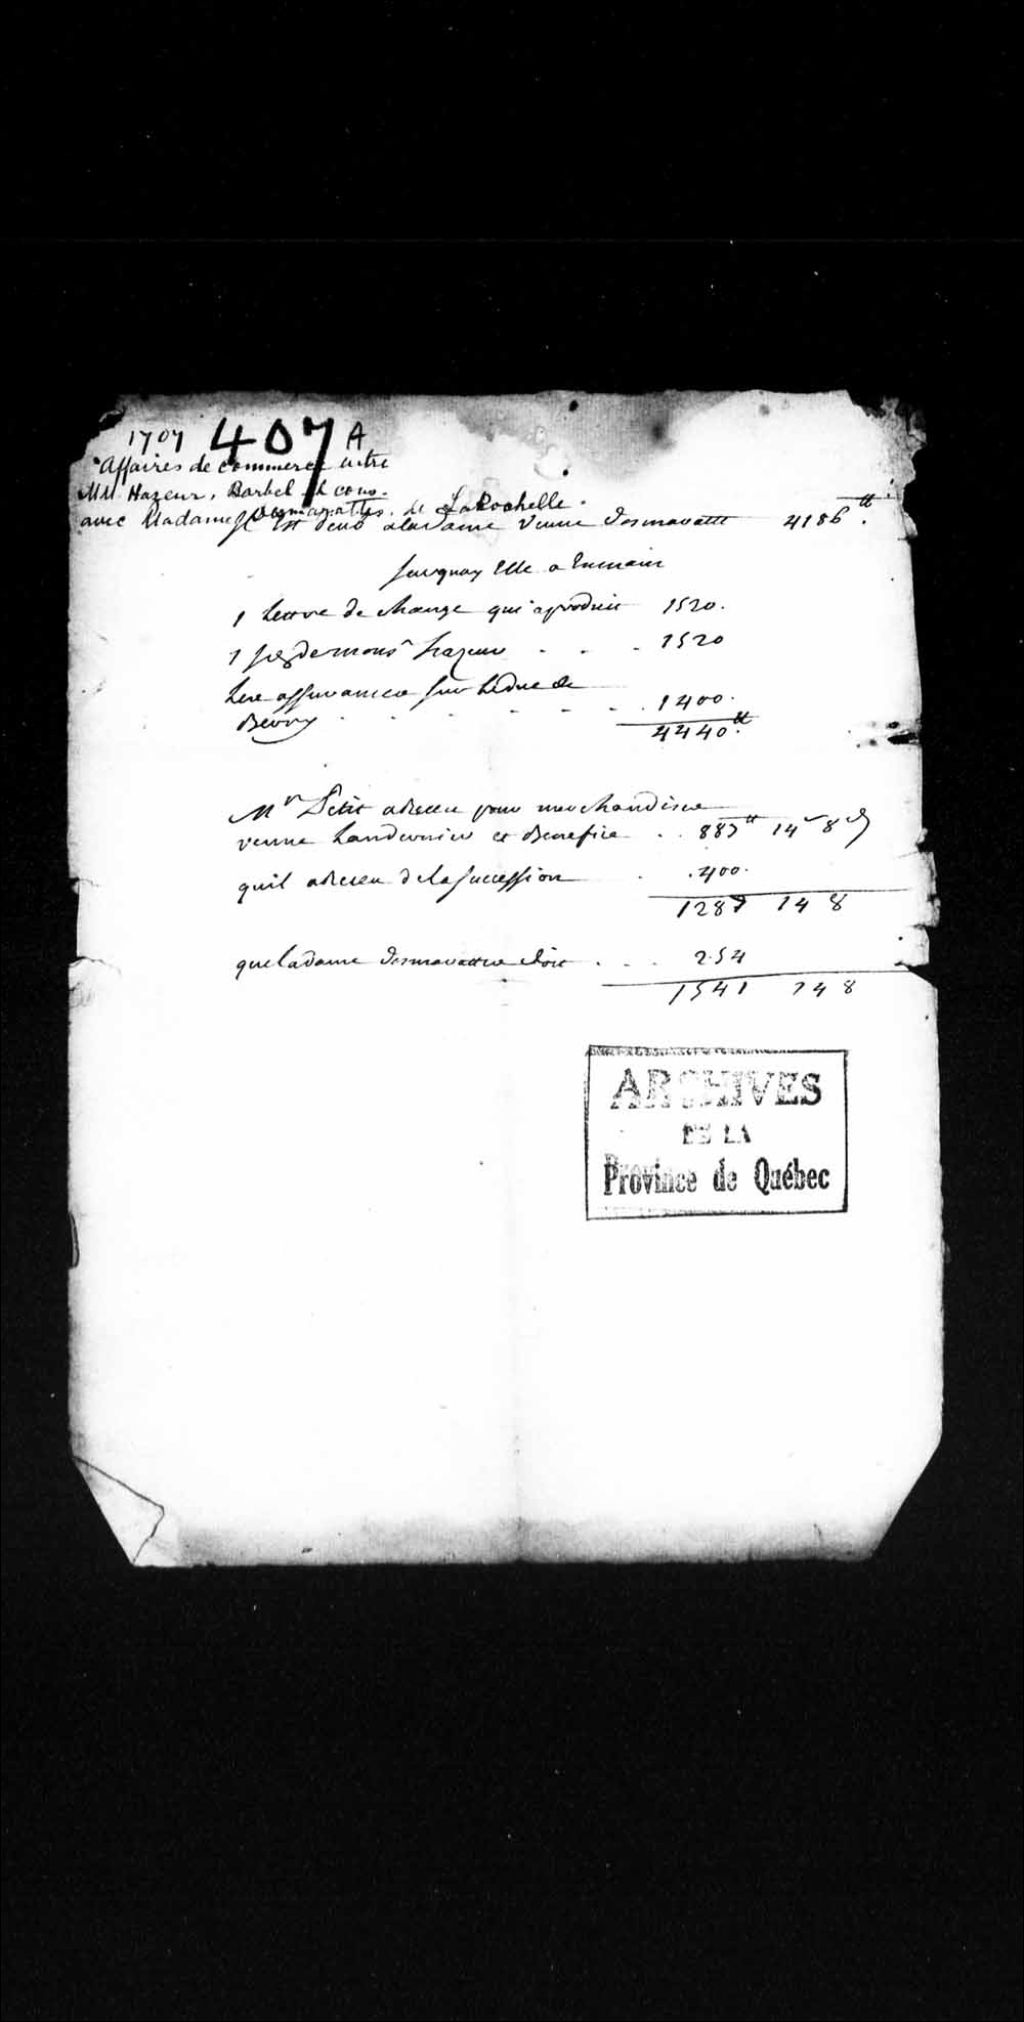 1707 407 A
Affaires de commerce entre
MM. Hazeur, Barbel & cons.
avec Madame Desmarattes. de LaRochelle.
Il est deub a la dame veuve desmarattes 4186tt.
surquoy Elle a Enmain
1 Lettre de change qui a produit 1520.
1 de mons.r hazeur . . . 1520
Les assurances sur Leduc de
Berry . . . . . . 1400.
4440tt.
Mr Petit a Receu pour marchandises
venue et Benefice . . 887tt 14s 8d
quil a Receu de la succession . 400.
1287 14 8
que la dame desmarattes doit . . . 254
1541 14 8
ARCHIVES
DE LA
Province de Québec